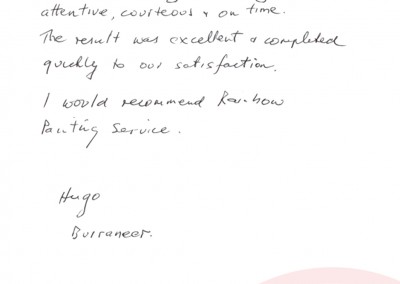 attentive, courteous & on time.
The result was excellent & completed
quickly to our satisfaction.
I would recommend Rainbow
Painting Service.
Hugo
Burraneer.